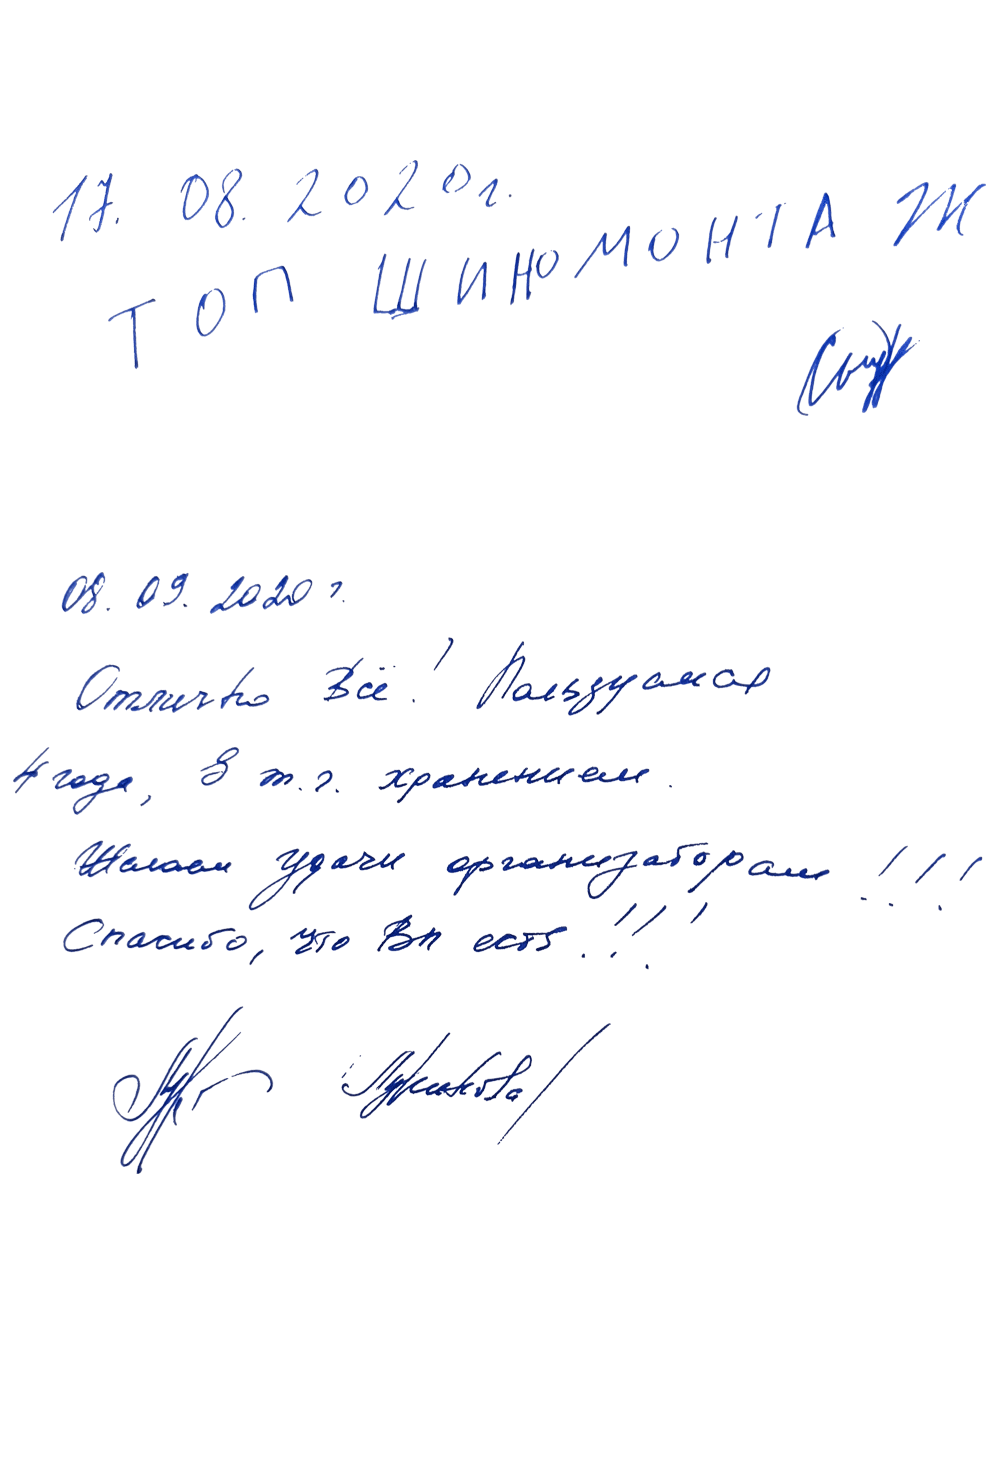 17. 08. 2020г.
ТОП ШИНОМОНТАЖ
08. 09. 2020 г.
Отлично Всё! Пользуемся
4 года, в т.г. хранением.
Желаем удачи организаторам!!!
Спасибо, что Вы есть!!!